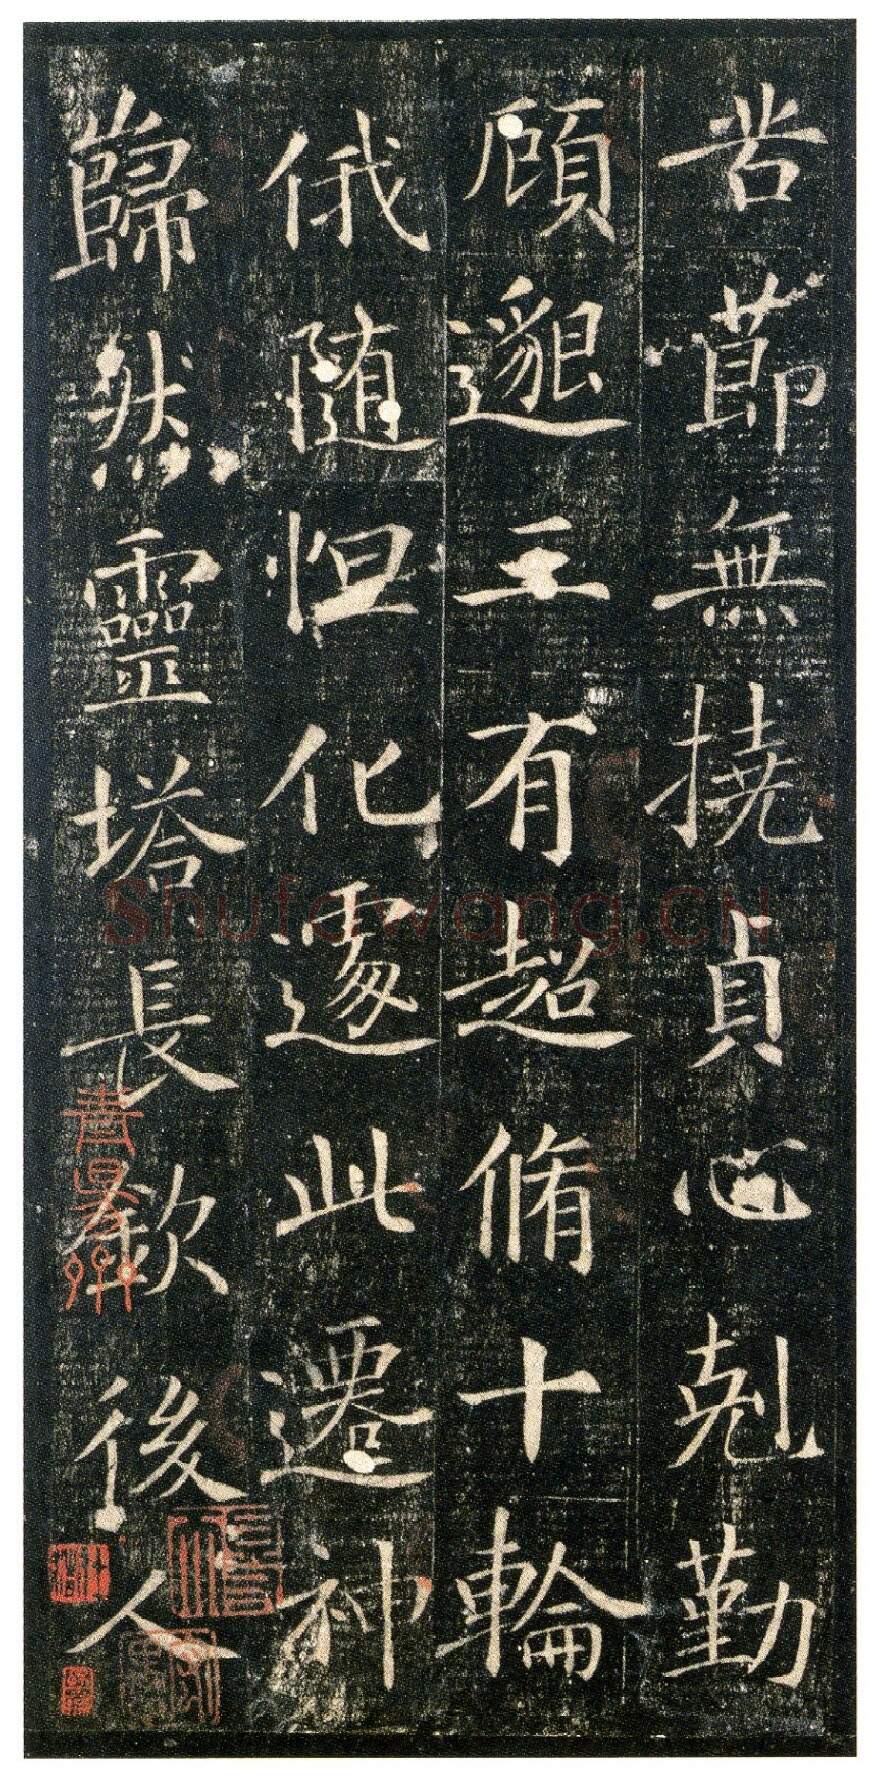 苦莭無撓貞心剋勤
顧邈三有超脩十輪
俄随怛化遽此遷神
歸然靈塔長欽後人
Shufawang.CN